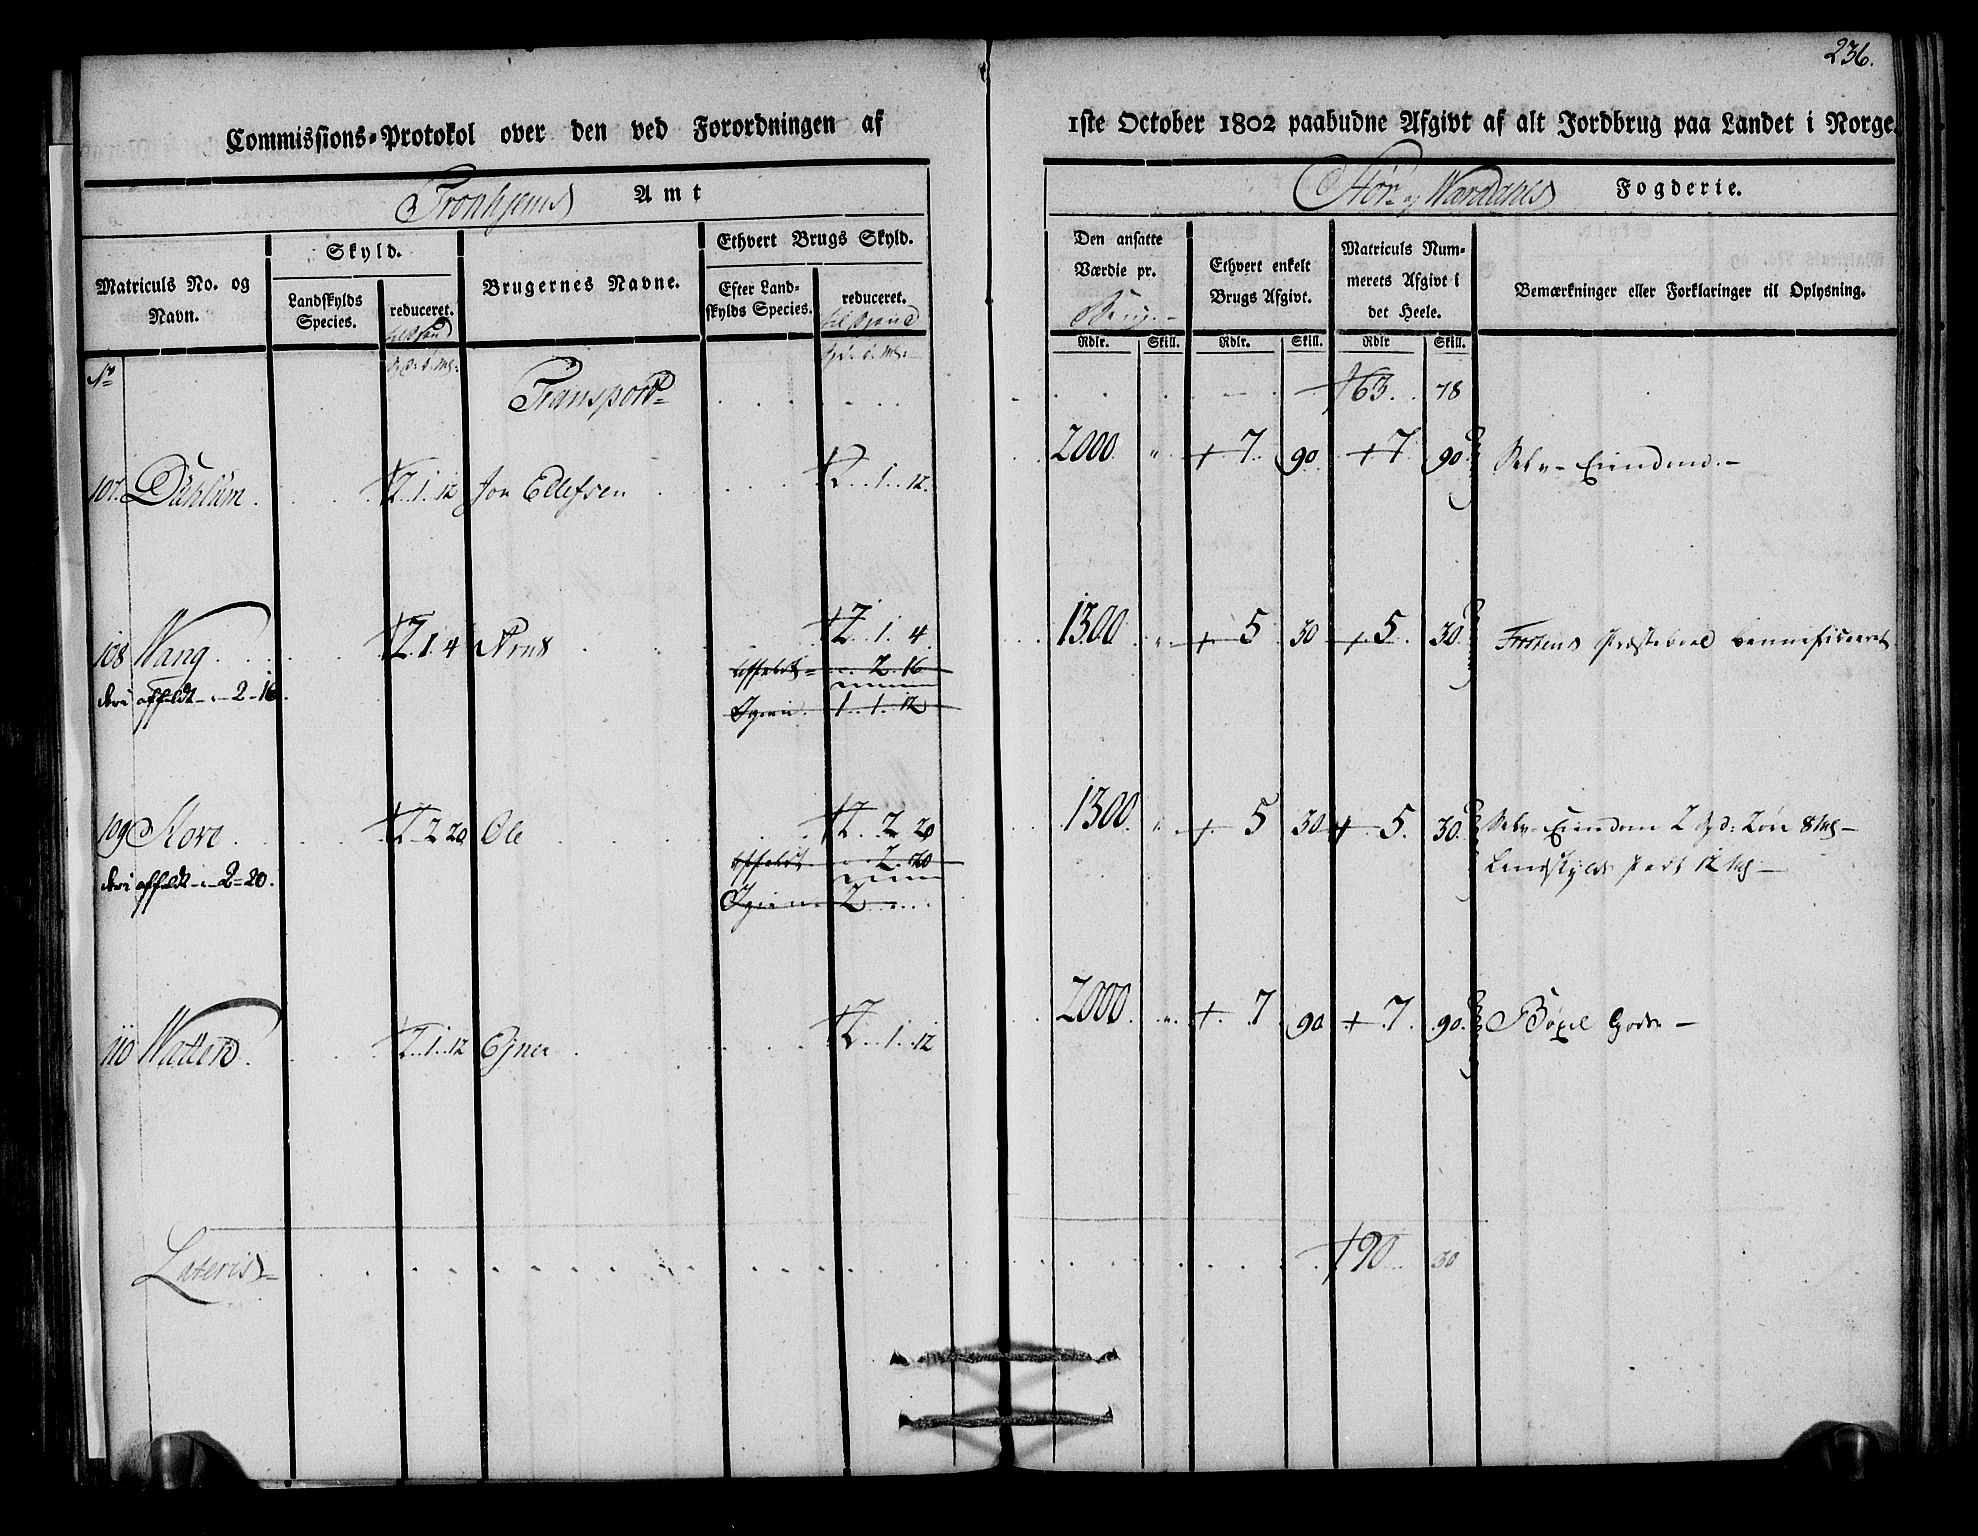 236.
Commissions-Protokol over den ved Forordningen af 1ste October 1802 paabudne Afgivt af alt Jordbrug paa Landet i Norge.
Tronhjems Amt
Stør- og Wærdahls Fogderie.
Matriculs No. og Navn.
Skyld.
Landskylds Species.
reduceret.
Brugernes Navne.
Ethvert Brugs Skyld.
Efter Landskylds Species.
reduceret.
Den ansatte Værdie pr.
Ethvert enkelt Brugs Afgivt.
Matriculs Nummerets Afgivt i det Heele.
Bemærkninger eller Forklaringer til Oplysning.
Rdlr. Skill. Rdlr. Skill. Rdlr Skill.
No
Transport 163. 78
107. Dahlum 2. 1. 12 Jon Ellefsen 2. 1. 12. 2000 " + 7 90 + 7 90 Selv-Eiendom.-
108 Wang 2. 1. 4 Arns 2. 1. 4 1300 " + 5 30 + 5 30 præstebord bennificeret
affældt 2-16.
affældt 2. 16
Igien 1. 1. 12
109 Store 2 20 Ole 2. 2 20 1300 " + 5 30 + 5. 30. Selv-Eiendom 2 Spd: 2 Øre 8 mk-
affældt 2-20.
affældt 2. 20
Igien 2
Landskylds part 12 mk-
110 Wattern 2. 1. 12 Ejner 2. 1. 12 2000 " + 7 90 + 7. 90. Bøxel Gods-
Lateris 190 30